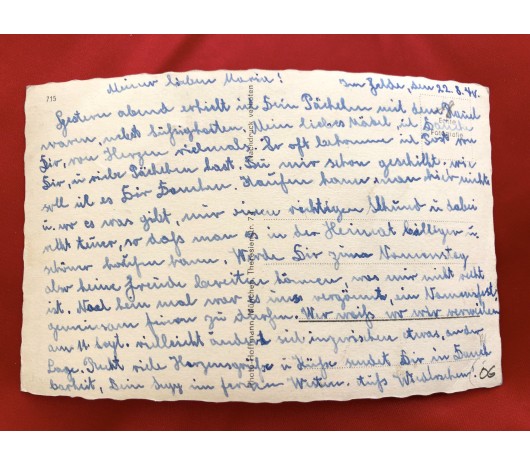 Meiner lieben Maria! Im Felde, den 22.8.44.
715
Gestern abend erhielt ich Dein Päckchen mit den
waren, nebst Süßigkeiten. Mein liebes Mädel, ich danke
Dir, von Herzen vielmals. So oft bekomme ich Post von
Dir, u. viele Päckchen hast Du mir schon geschickt. wie
soll ich es Dir danken. Kaufen kann man hier nichts
u. wo es was gibt, nur einen richtigen Schund u. dabei
recht teuer, so daß man es in der Heimat billiger u.
schöner kaufen kann. Werde Dir zum Namenstag
aber keine Freude bereiten können, was mir nicht recht
ist. Noch kein mal war es uns vergönnt, ein Namensfest
gemeinsam feiern zu dürfen. Wer weiß wo wir verweilen
am 11. Sept. vielleicht ändert sich inzwischen etwas, an der
Lage. Recht viele Herzensgrüße u. Küsse sendet Dir in Dank
barkeit, Dein Sepp im fernen Westen.
Photo-Hoffmann, München, Theresienstr.
Nachdruck verboten
Echte
Fotografie
06